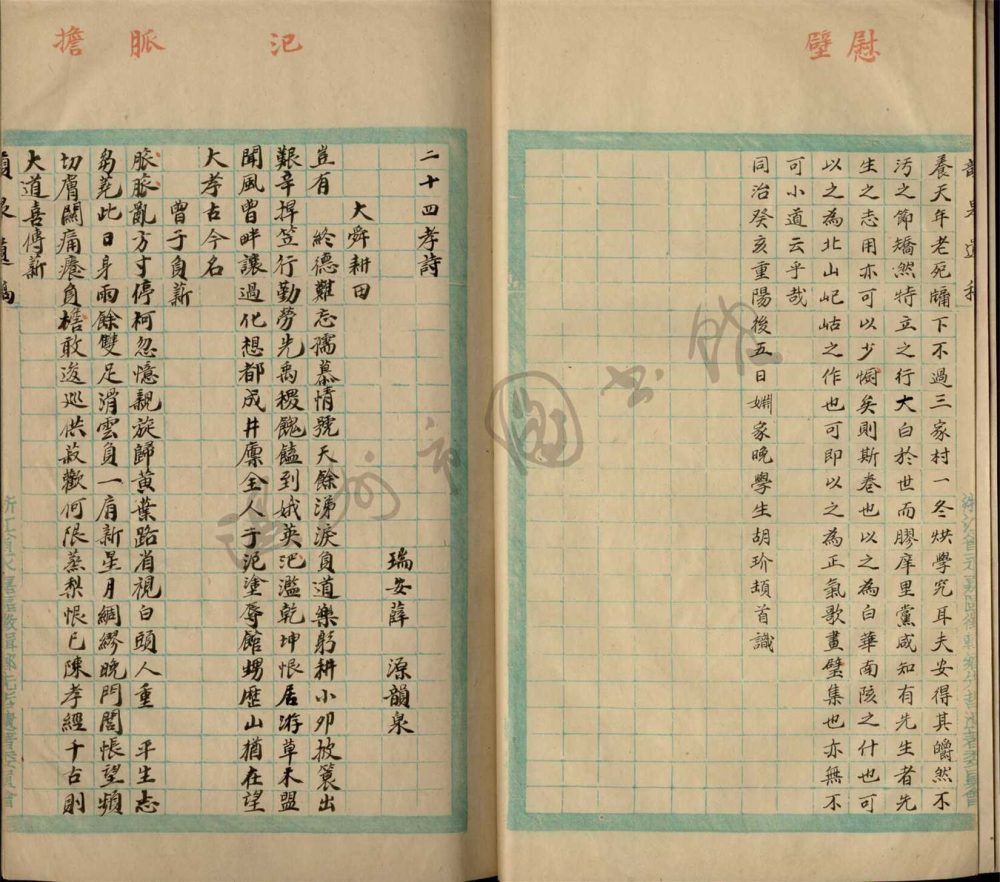 慰
壁
養天年老死牖下不過三家村一冬烘學究耳夫安得其皭然不
污之節矯然特立之行大白於世而膠庠里黨咸知有先生者先
生之志用亦可以少慰矣則斯卷也以之為白華南陔之什也可
以之為北山屺岵之作也可即以之為正氣歌畫壁集也亦無不
可小道云乎哉
同治癸亥重陽後五日婣家晚學生胡玠頓首識
汜
脈
擔
二十四孝詩
瑞安薛 源韻泉
大舜耕田
豈有 終德難忘孺慕情號天餘涕淚負道樂躬耕小卯披簑出
艱辛捍笠行勤勞先禹稷餽饁到娥英汜濫乾坤恨居游草木盟
聞風曾畔讓過化想都成井廩全人于汜塗辱館甥歷山猶在望
大孝古今名
曾子負薪
脈脈亂方寸停柯忽憶親旋歸黃葉路省視白頭人重 平生志
芻蕘此日身雨餘雙足滑雲負一肩新星月綢繆晚門閭悵望頻
切膚關痛癢負擔敢逡巡供菽歡何限蒸梨恨已陳孝經千古則
大道喜傳薪
韻泉遺稿